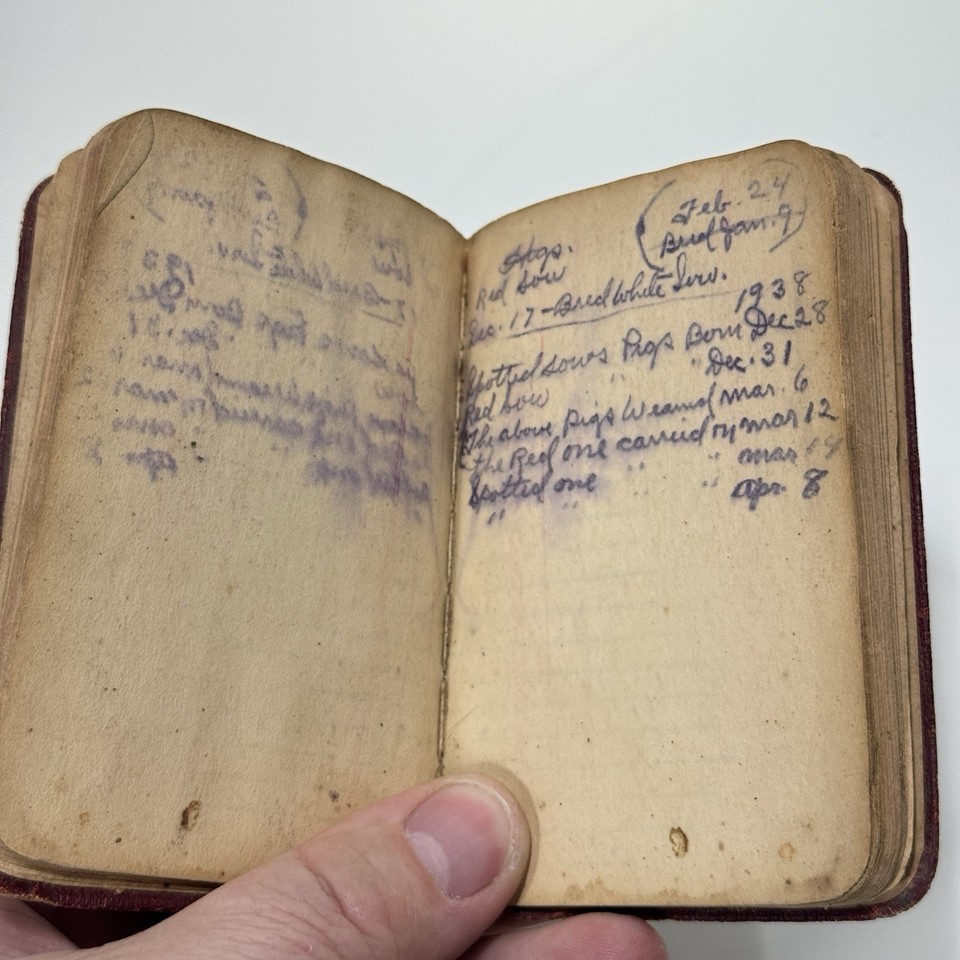 (Feb. 24
Bred Jan. 9)
Hogs.
Red Sow
Dec. 17 - Bred White Serv.
1938
Spotted Sows Pigs Born Dec 28
Red Sow " " Dec. 31
The above Pigs Weaned mar. 6
the Red one carried by mar 12
Spotted one " " mar 14
" " " apr. 8